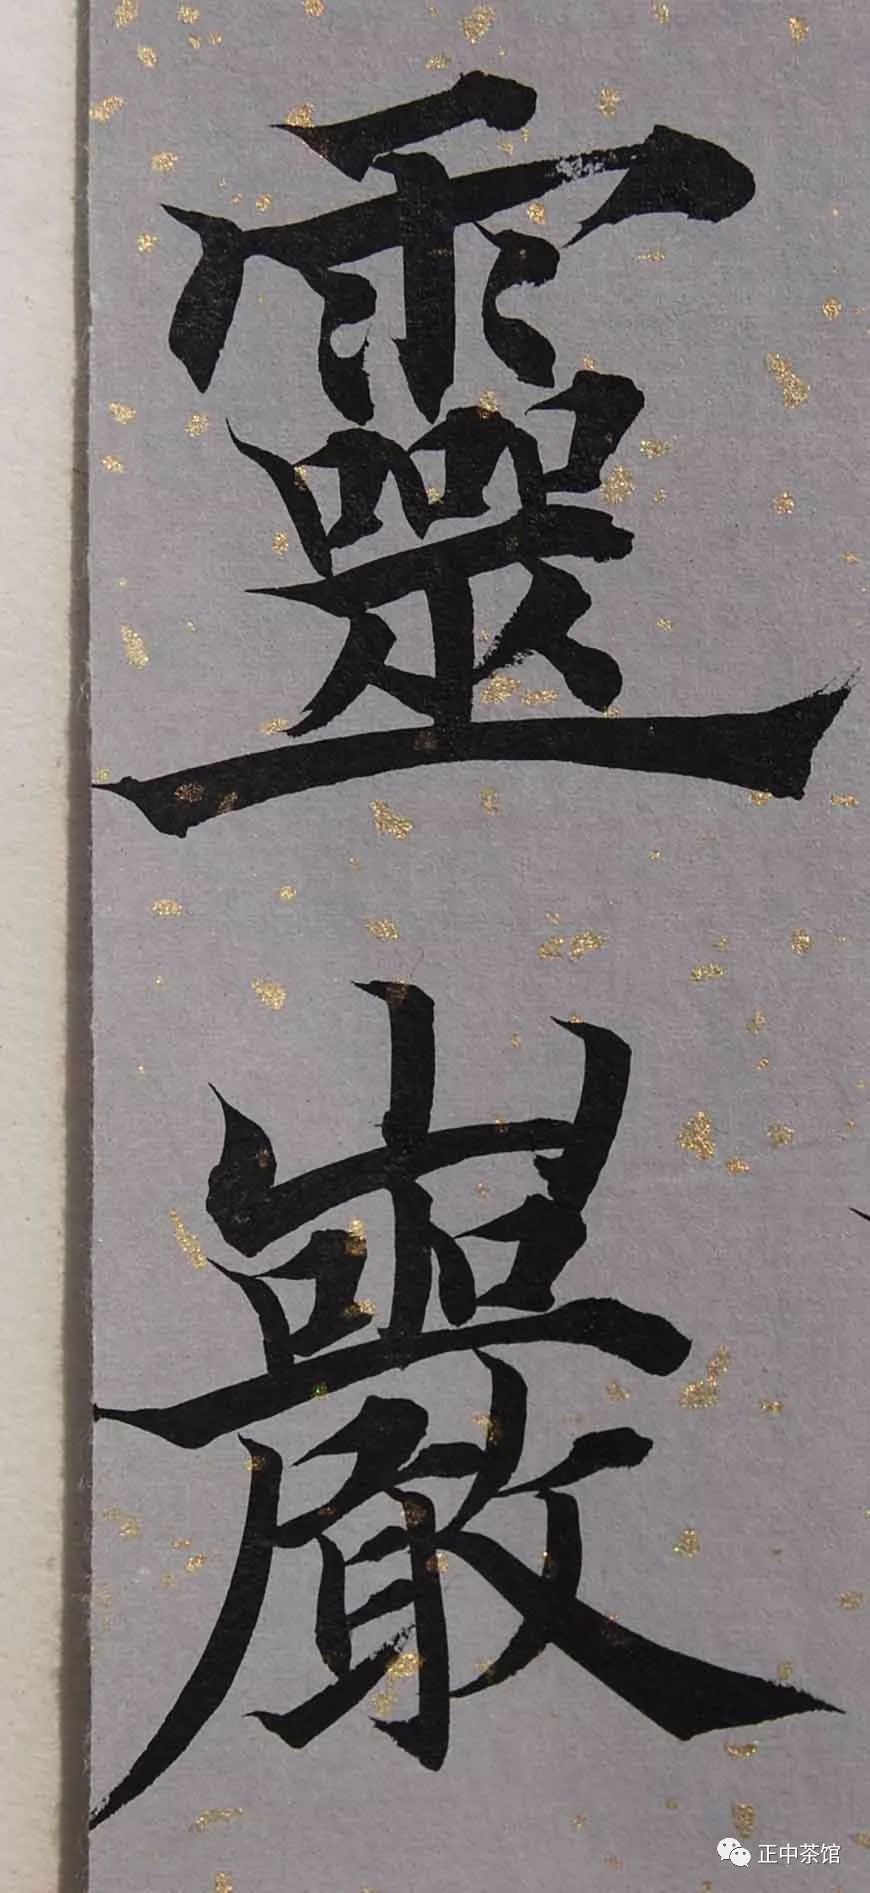 靈巖
正中茶馆